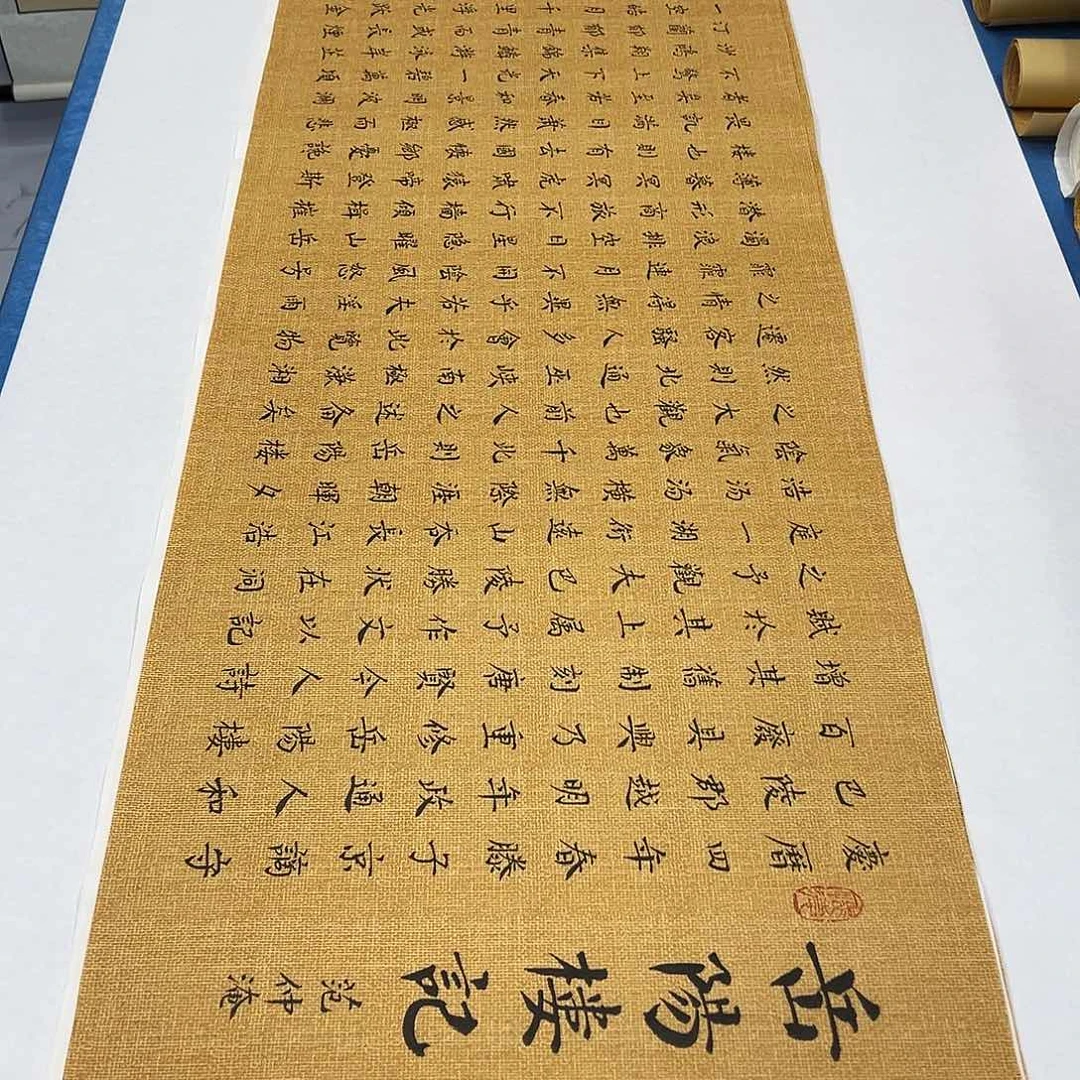 岳陽樓記
范仲淹
慶曆四年春滕子京謫守
巴陵郡越明年政通人和
百廢具興乃重修岳陽樓
增其舊制刻唐賢今人詩
賦於其上属予作文以記
之予觀夫巴陵勝狀在洞
庭一湖銜遠山吞長江浩
浩湯湯橫無際涯朝暉夕
陰氣象萬千此則岳陽樓
之大觀也前人之述俻矣
然則北通巫峽南極瀟湘
遷客騷人多會於此覽物
之情得無異乎若夫淫雨
霏霏連月不開陰風怒号
濁浪排空日星隐曜山岳
潜形商旅不行檣傾楫摧
薄暮冥冥虎嘯猿啼登斯
樓也則有去國懷鄉憂讒
畏譏滿目蕭然感極而悲
者矣至若春和景明波瀾
不驚上下天光一碧萬頃
沙鷗翔集錦鱗游泳岸芷
汀蘭郁郁青青而或長煙
一空皓月千里浮光躍金